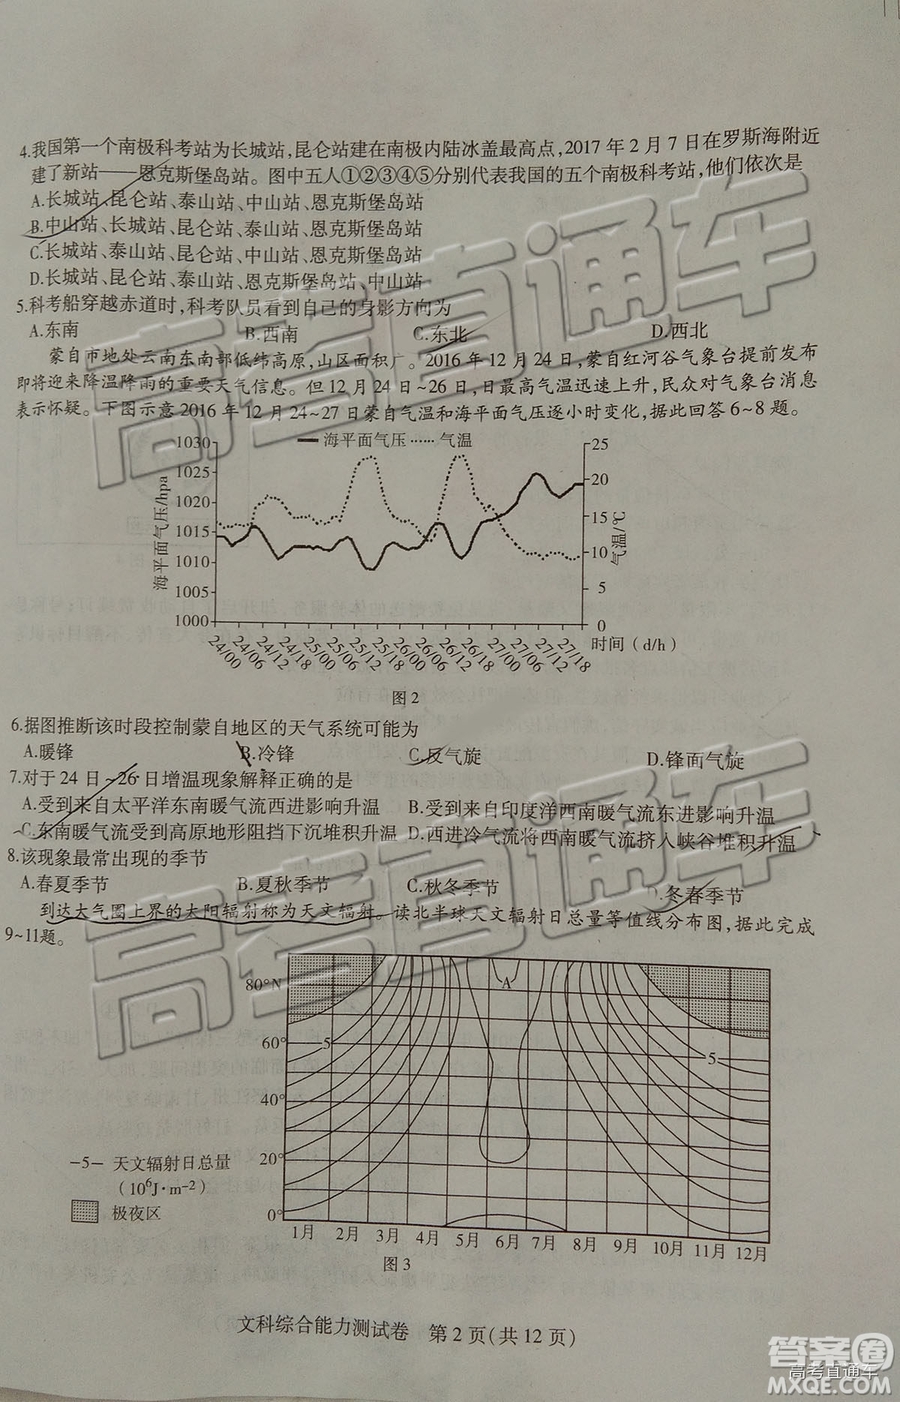 4.我国第一个南极科考站为长城站,昆仑站建在南极内陆冰盖最高点,2017年2月7日在罗斯海附近
建了新站——恩克斯堡岛站。图中五人①②③④⑤分别代表我国的五个南极科考站,他们依次是
A.长城站、昆仑站、泰山站、中山站、恩克斯堡岛站
B.中山站、长城站、昆仑站、泰山站、恩克斯堡岛站
C.长城站、泰山站、昆仑站、中山站、恩克斯堡岛站
D.长城站、昆仑站、泰山站、恩克斯堡岛站、中山站
5.科考船穿越赤道时,科考队员看到自己的身影方向为
A.东南 B.西南 C.东北 D.西北
蒙自市地处云南东南部低纬高原,山区面积广。2016年12月24日,蒙自红河谷气象台提前发布
即将迎来降温降雨的重要天气信息。但12月24日~26日,日最高气温迅速上升,民众对气象台消息
表示怀疑。下图示意2016年12月24~27日蒙自气温和海平面气压逐小时变化,据此回答6~8题。
海平面气压 气温
海平面气压/hpa
1030
1025
1020
1015
1010
1005
1000
25
20
15
10
5
0
气温/℃
24/00 24/06 24/12 24/18 25/00 25/06 25/12 25/18 26/00 26/06 26/12 26/18 27/00 27/06 27/12 27/18
时间(d/h)
图2
6.据图推断该时段控制蒙自地区的天气系统可能为
A.暖锋 B.冷锋 C.反气旋 D.锋面气旋
7.对于24日~26日增温现象解释正确的是
A.受到来自太平洋东南暖气流西进影响升温 B.受到来自印度洋西南暖气流东进影响升温
C.东南暖气流受到高原地形阻挡下沉堆积升温 D.西进冷气流将西南暖气流挤入峡谷堆积升温
8.该现象最常出现的季节
A.春夏季节 B.夏秋季节 C.秋冬季节 D.冬春季节
到达大气圈上界的太阳辐射称为天文辐射。读北半球天文辐射日总量等值线分布图,据此完成
9~11题。
80°N
60°
40°
20°
0°
5
A
5
-5- 天文辐射日总量
(10⁶J·m⁻²)
极夜区
1月 2月 3月 4月 5月 6月 7月 8月 9月 10月 11月 12月
图3
文科综合能力测试卷 第2页(共12页)
高考直通车
高考直通车
答案圈
高考直通车
MXQE.COM